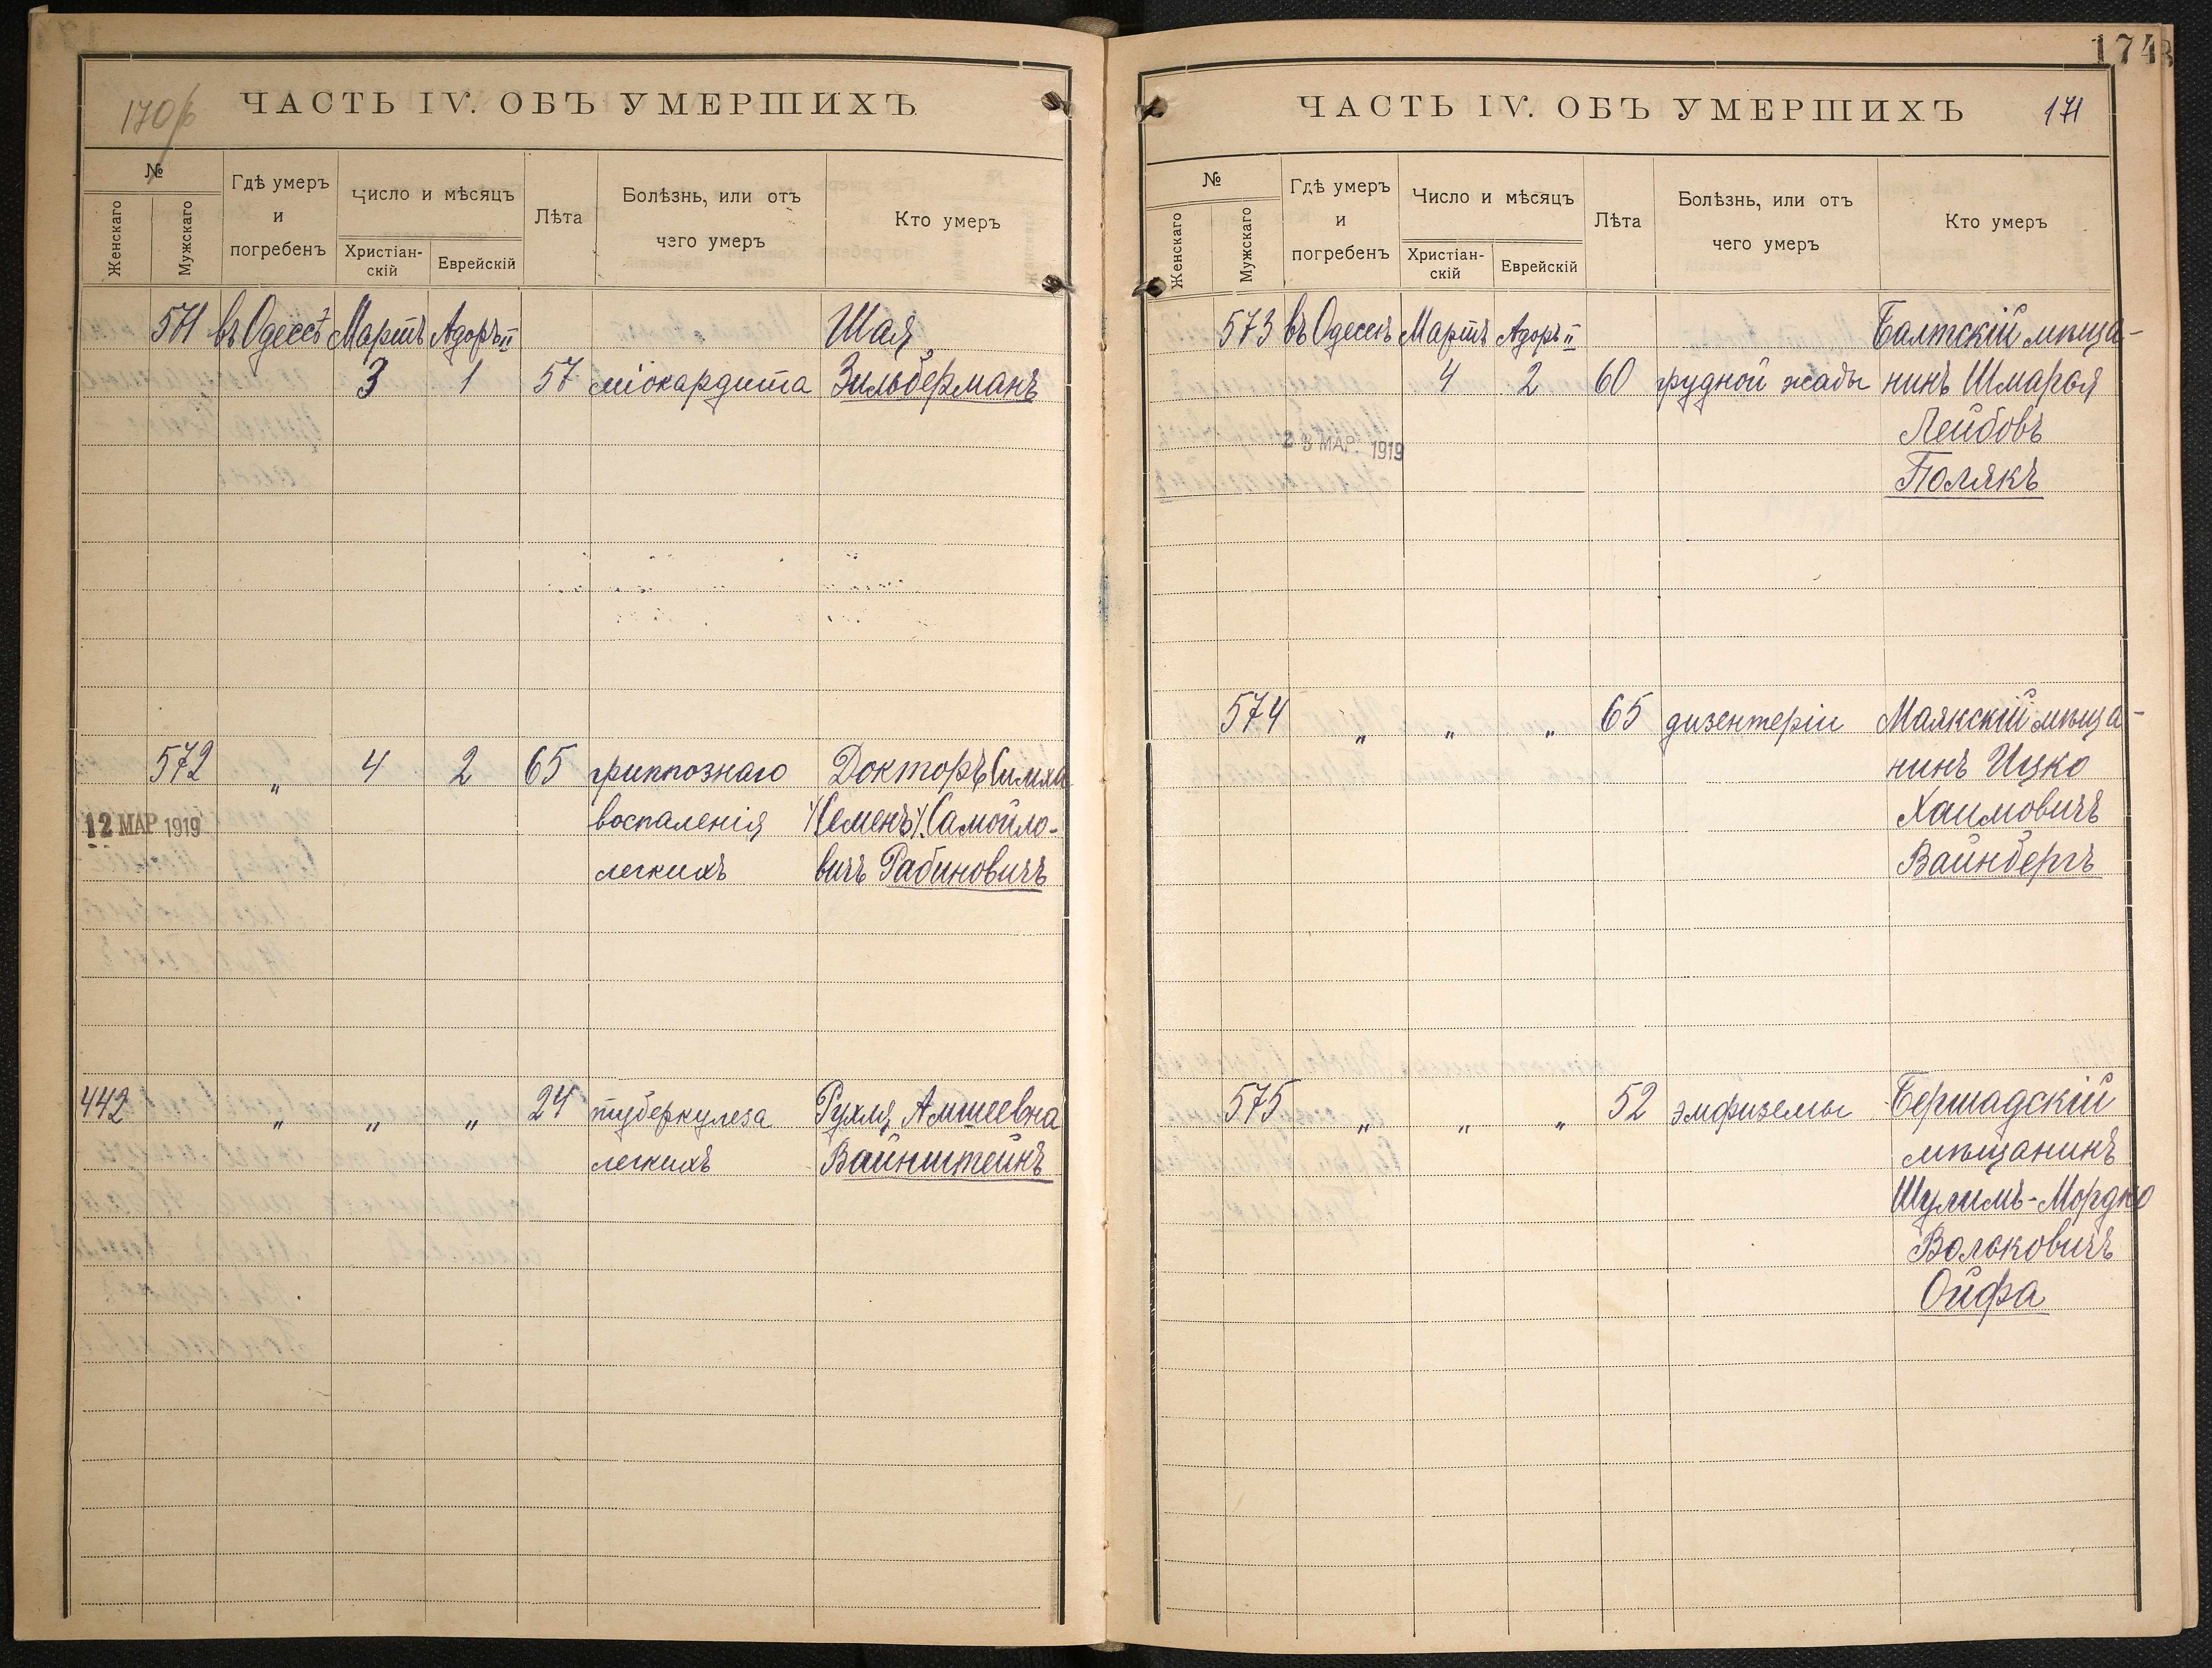 170об
ЧАСТЬ IV. ОБЪ УМЕРШИХЪ
№
Женскаго
Мужскаго
Гдѣ умеръ
и
погребенъ
Число и мѣсяцъ
Христіан-
скій
Еврейскій
Лѣта
Болѣзнь, или отъ
чего умеръ
Кто умеръ
571 въ Одессѣ Мартъ Адоръ II Шая
3 1 57 міокардита Зильберманъ
572 " 4 2 65 гриппознаго Докторъ Симха
12 МАР 1919 воспаленія /Семенъ/ Самойло-
легкихъ вичъ Рабиновичъ
442 " " " 24 туберкулеза Рухля Амшеевна
легкихъ Вайнштейнъ
174
ЧАСТЬ IV. ОБЪ УМЕРШИХЪ
171
№
Женскаго
Мужскаго
Гдѣ умеръ
и
погребенъ
Число и мѣсяцъ
Христіан-
скій
Еврейскій
Лѣта
Болѣзнь, или отъ
чего умеръ
Кто умеръ
573 въ Одессѣ Мартъ Адоръ II Балтскій мѣща-
4 2 60 грудной жабы нинъ Шмарья
Лейбовъ
МАР. 1919
Полякъ
574 " " " 65 дизентеріи Маякскій мѣща-
нинъ Ицко
Хаимовичъ
Вайнбергъ
575 " " " 52 эмфиземы Бершадскій
мѣщанинъ
Шулимъ-Мордко
Вольковичъ
Ойфа